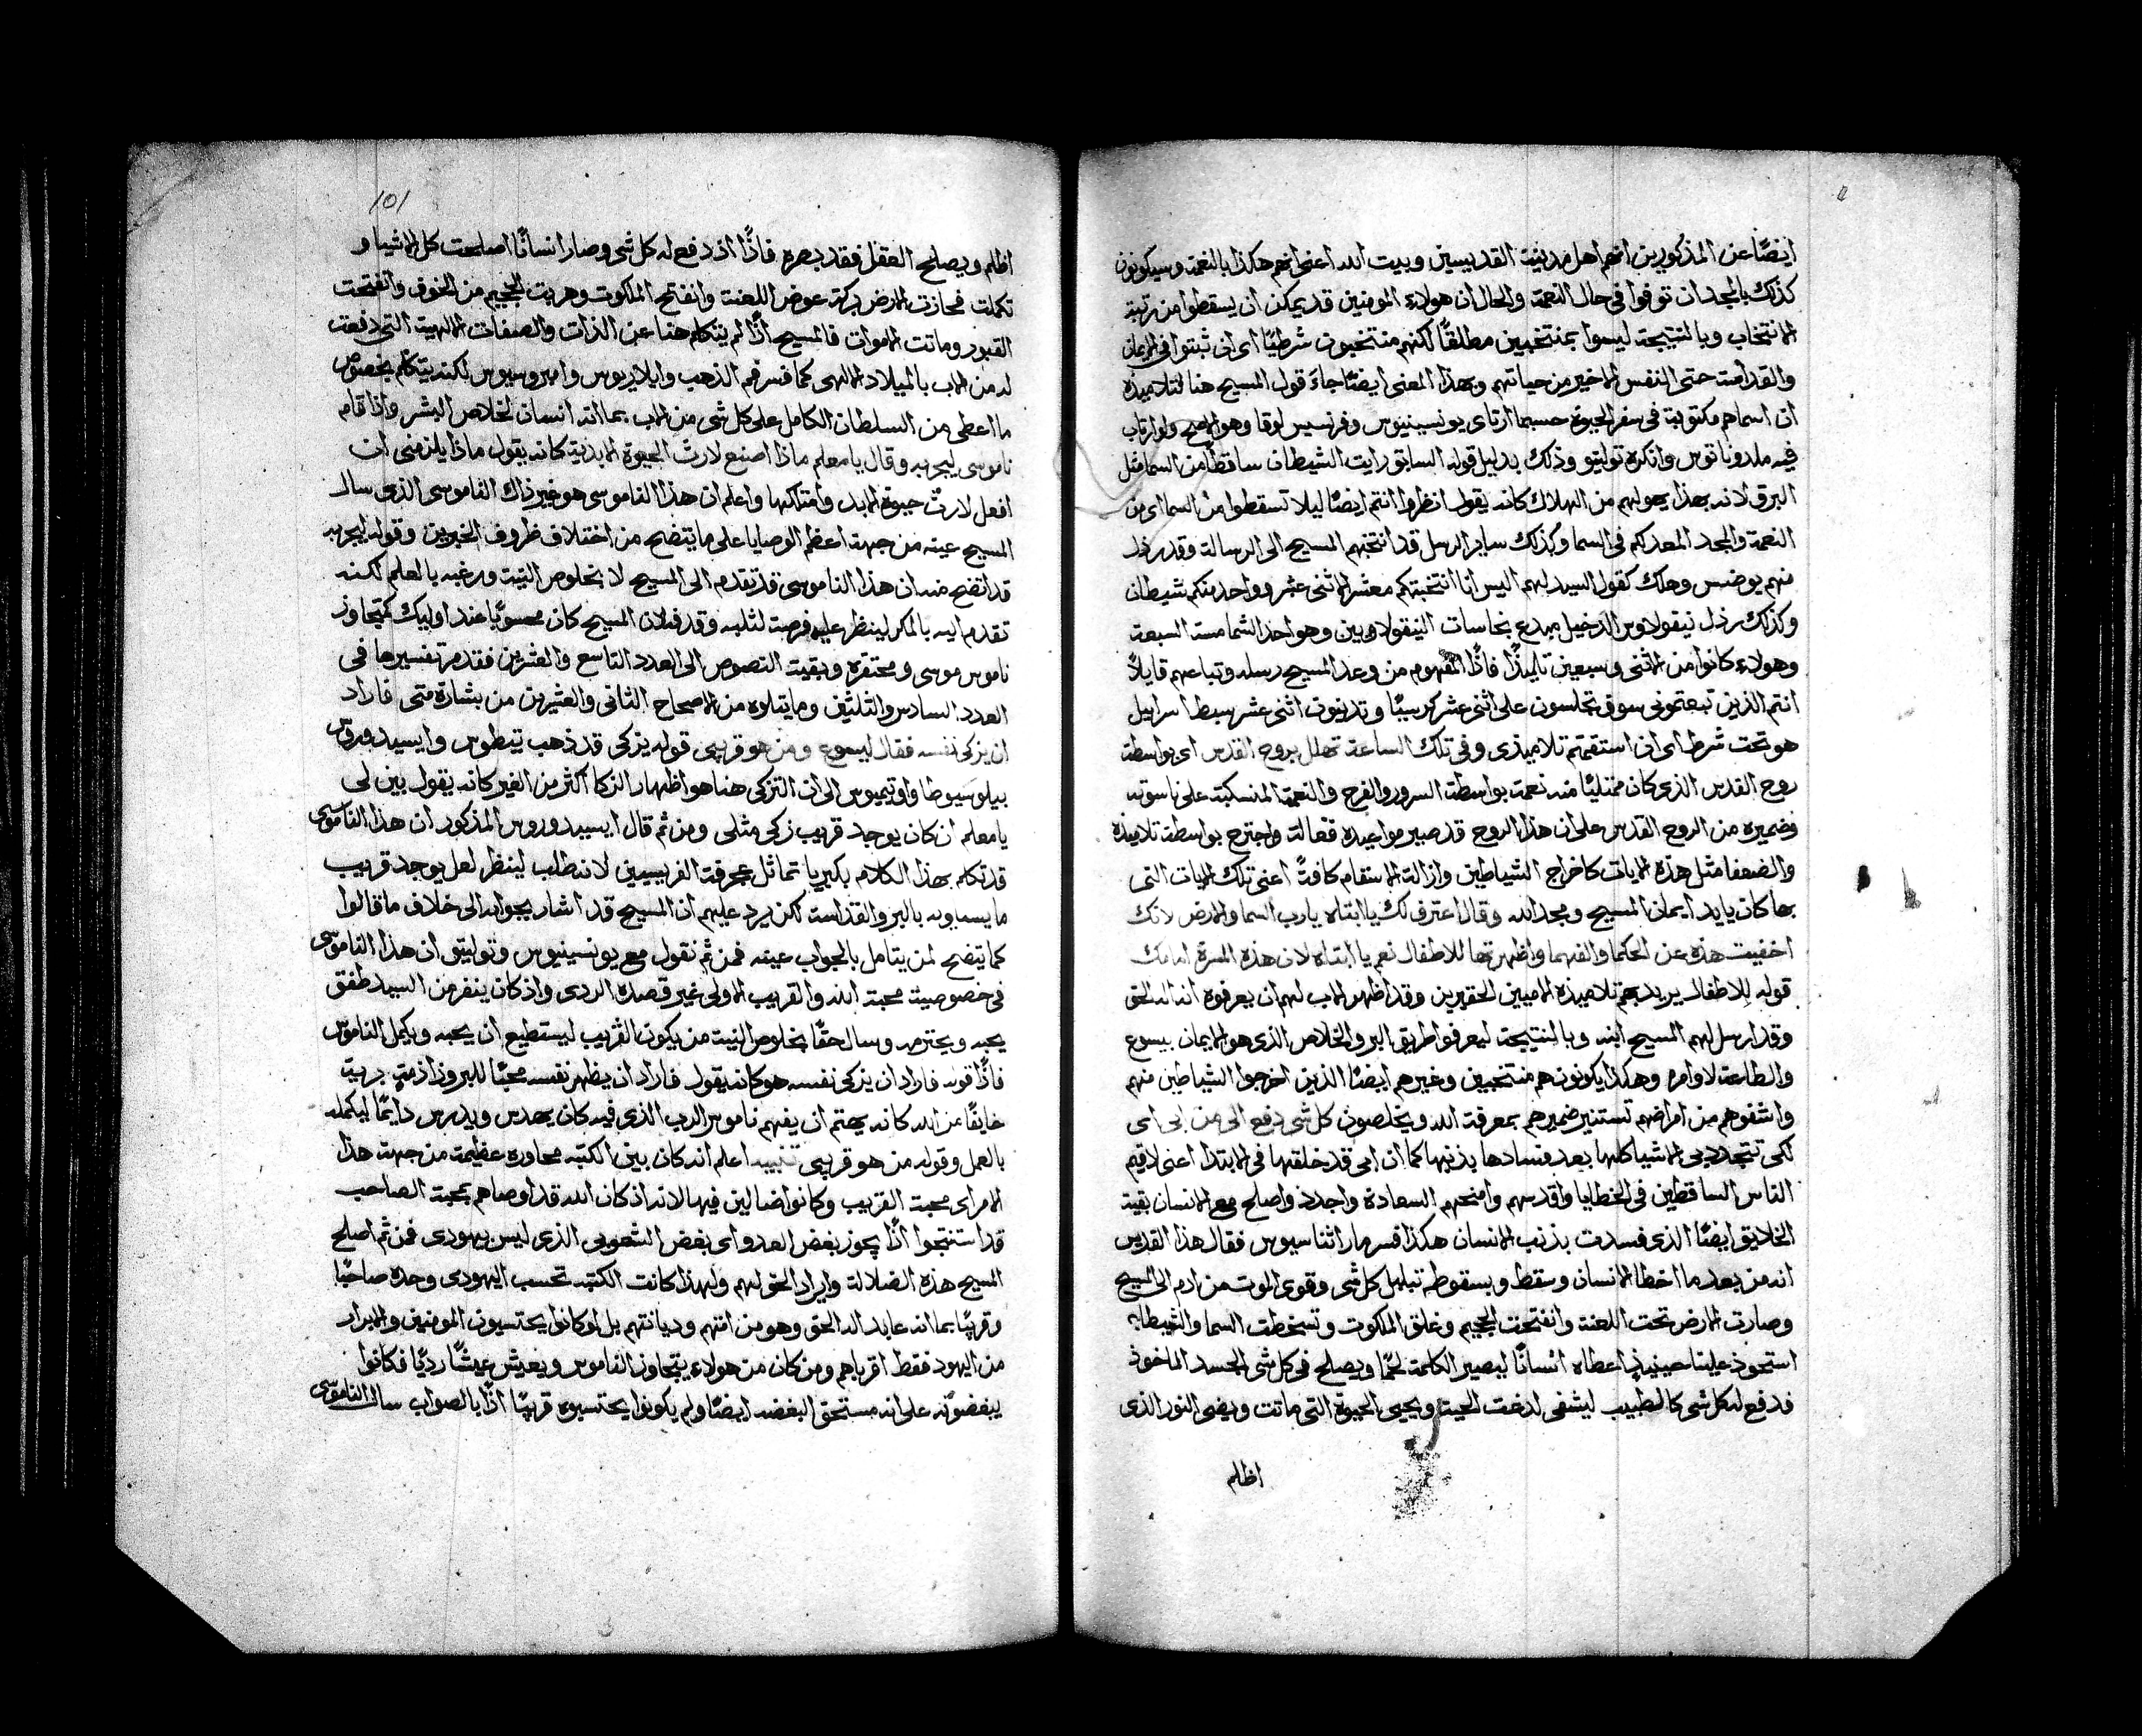 ايضًا عن المذكورين انهم اهل مدينة القديسين وبيت الله اعني انهم هكذا بالنعمة وسيكونون
كذلك بالمجد ان توفوا في حال النعمة والحال ان هولاء المومنين قد يمكن ان يسقطوا من رتبة
الانتخاب وبالنتيجة ليسوا بمنتخبين مطلقًا لكنهم منتخبون شرطيًا اي ان ثبتوا في الايمان
والقداسة حتى النفس الاخير من حياتهم وبهذا المعنى ايضًا جاءَ قول المسيح هنا لتلاميذه
ان اسماهم مكتوبة في سفر الحيوة حسبما ارتاى يونسينيوس وفرنسيس لوقا وهو الاصح ولو ارتاب
فيه ملدوناتوس وانكره توليتو وذلك بدليل قوله السابق رايت الشيطان ساقطًا من السما مثل
البرق لانه بهذا يهولهم من الهلاك كانه يقول انظروا انتم ايضًا ليلا تسقطوا من السما اي من
النعمة والمجد المعد لكم في السما وكذلك ساير الرسل قد انتخبهم المسيح الى الرسالة وقد رذل
منهم يوضس وهلك كقول السيد لهم اليس انا انتخبتكم معشر الاثنى عشر وواحد منكم شيطان
وكذلك رذل نيقولاوس الدخيل مبدع نجاسات النيقولاويين وهو احد الشمامسة السبعة
وهولاء كانوا من الاثنى وسبعين تليذًا فاذًا المفهوم من وعد المسيح رسله وتباعهم قايلاً
انتم الذين تبعتموني سوف تجلسون على اثنى عشر كرسيًا وتدينون اثنى عشر سبط اسراييل
هو تحت شرط اي ان استقمتم تلاميذي وفي تلك الساعة تهلل بروح القدس اي بواسطة
روح القدس الذي كان ممتليًا منه نعمة بواسطة السرور والفرح والنعمة المنسكبة على ناسوته
وضميره من الروح القدس على ان هذا الروح قد صير مواعيده فعالة واجترح بواسطة تلاميذه
والضعفا مثل هذه الايات كاخراج الشياطين وازالة الاسقام كافةً اعني تلك الايات التي
بها كان يايد ايمان المسيح ومجد الله وقال اعترف لك يا ابتاه يا رب السما والارض لانك
اخفيت هذه عن الحكما والفهما واظهرتها للاطفال نعم يا ابتاه لان هذه المسرة امامك
قوله للاطفال يريد بهم تلاميذه الاميين الحقيرين وقد اظهر الاب لهم ان يعرفوه انه اله الحق
وقد ارسل لهم المسيح ابنه وبالنتيجة ليعرفوا طريق البر والخلاص الذي هو الايمان بيسوع
والطاعة لاوامره وهكذا يكونون هم منتخبين وغيرهم ايضًا الذين اخرجوا الشياطين منهم
واشفوهم من امراضهم تستنير ضميرهم بمعرفة الله ويخلصون كل شي دفع الي من ابي اي
لكي تتجدد بي الاشيا كلها بعد فسادها بذنبها كما ان ابي قد خلقها في الابتدا اعني لاقيم
الناس الساقطين في الخطايا واقدسهم وامنحهم السعادة واجدد واصلح مع الانسان بقية
الخلايق ايضًا الذي فسدت بذنب الانسان هكذا فسر مار اثناسيوس فقال هذا القديس
انه من بعد ما اخطا الانسان وسقط وبسقوطه تبلبل كل شي وقوي الموت من ادم الى المسيح
وصارت الارض تحت اللعنة وانفتحت الجحيم وغلق الملكوت وتسخطت السما والشيطان
استحوذ علينا حينيذٍ اعطاه انسانًا ليصير الكلمة لحمًا ويصلح في كل شي الجسد الماخوذ
فدفع له كل شي كالطبيب ليشفي لدغت الحية ويحيي الحيوة التي ماتت ويضي النور الذي
اظلم
101
اظلم ويصلح العقل فقد بصره فاذًا اذ دفع له كل شي وصار انسانًا اصلحت كل الاشيا و
تكملت فحازت الارض بركة عوض اللعنة وانفتح الملكوت وهربت الجحيم من الخوف وانفتحت
القبور وماتت الاموات فالمسيح اذًا لم يتكلم هنا عن الذات والصفات الالهية التي دفعت
له من الاب بالميلاد الالهي كما فسر فم الذهب وايلاريوس وامبروسيوس لكنه يتكلم بخصوص
ما اعطي من السلطان الكامل على كل شي من الاب بما انه انسان لخلاص البشر واذا قام
ناموسي ليجربه وقال يا معلم ماذا اصنع لارث الحيوة الابدية كانه يقول ماذا يلزمني ان
افعل لارث حيوة الابد وامتلكها واعلم ان هذا الناموسي هو غير ذاك الناموسي الذي سال
المسيح عينه من جهة اعظم الوصايا على ما يتضح من اختلاف ظروف الخبريين وقوله ليجربه
قد اتضح منه ان هذا الناموسي قد تقدم الى المسيح لا بخلوص النية ورغبه بالعلم لكنه
تقدم اليه بالمكر لينظر عليه فرصة لثلبه وقد فلان المسيح كان محسوبًا عند اوليك كمتجاوز
ناموس موسى ومحتقره وبقية النصوص الى العدد التاسع والعشرين فقد مر تفسيرها في
العدد السادس والثلثين وما يتلوه من الاصحاح الثاني والعشرين من بشارة متى فاراد
ان يزكي نفسه فقال ليسوع ومن هو قريبي قوله يزكي قد ذهب تيطوس وايسيدوروس
بيلوسيوطا واوتيميوس الى ان التزكي هنا هو اظهار الزكا اكثر من الغير كانه يقول بين لي
يا معلم ان كان يوجد قريب زكي مثلي ومن ثم قال ايسيدوروس المذكور ان هذا الناموسي
قد تكلم بهذا الكلام بكبريا تماثل عجرفة الفريسيين لانه طلب لينظر لعل يوجد قريب
ما يساويه بالبر والقداسة لكن يرد عليهم ان المسيح قد اشار بجوابه الى خلاف ما قالوا
كما يتضح لمن يتامل بالجواب عينه فمن ثم نقول مع يونسينيوس وتوليتو ان هذا الناموسي
في خصوصية محبة الله والقريب الاولى غير قصده الردي واذ كان ينفر من السيد طفق
يحبه ويحترمه وسال حقًا بخلوص النية من يكون القريب ليستطيع ان يحبه ويكمل الناموس
فاذًا قوله فاراد ان يزكي نفسه هو كانه يقول فاراد ان يظهر نفسه محبًا للبر وذا ذمةٍ برية
خايفًا من الله كانه يهتم ان يفهم ناموس الرب الذي فيه كان يهدس ويدرس دايمًا ليكمله
بالعمل وقوله من هو قريبي تنبيه اعلم انه كان بين الكتبه محاوره عظيمة من جهة هذا
الامر اي محبة القريب وكانوا ضالين فيها لانه اذ كان الله قد اوصاهم بمحبة الصاحب
قد استنتجوا اذًا يجوز بغض العدو اي بغض الشعوبي الذي ليس يهودي فمن ثم اصلح
المسيح هذه الضلالة وايراد الحق لهم ولهذا كانت الكتبه تحسب اليهودي وحده صاحبًا
وقريبًا بما انه عابد اله الحق وهو من امتهم وديانتهم بل لو كانوا يحتسبون المومنين والابرار
من اليهود فقط اقرباهم ومن كان من هولاء يتجاوز الناموس ويعيش عيشًا رديًا فكانوا
يبغضونه على انه مستحق البغضه ايضًا ولم يكونوا يحتسبوه قريبًا اذًا بالصواب سال الناموسي